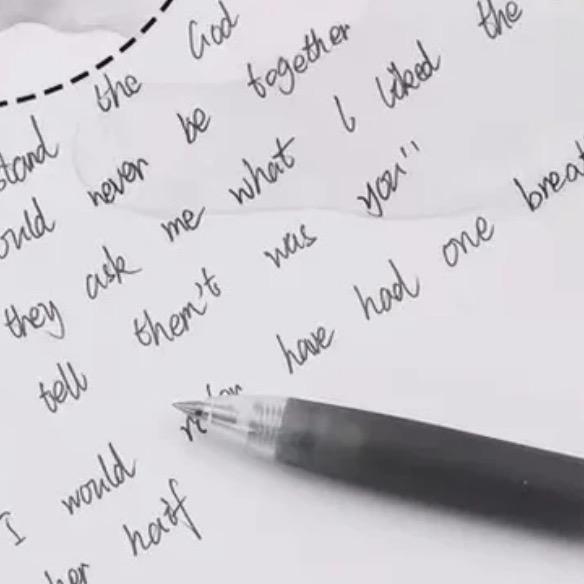 the God
stand never be together
ould ask me what I liked the
they them't was you"
tell have had one breat
I would
her haif